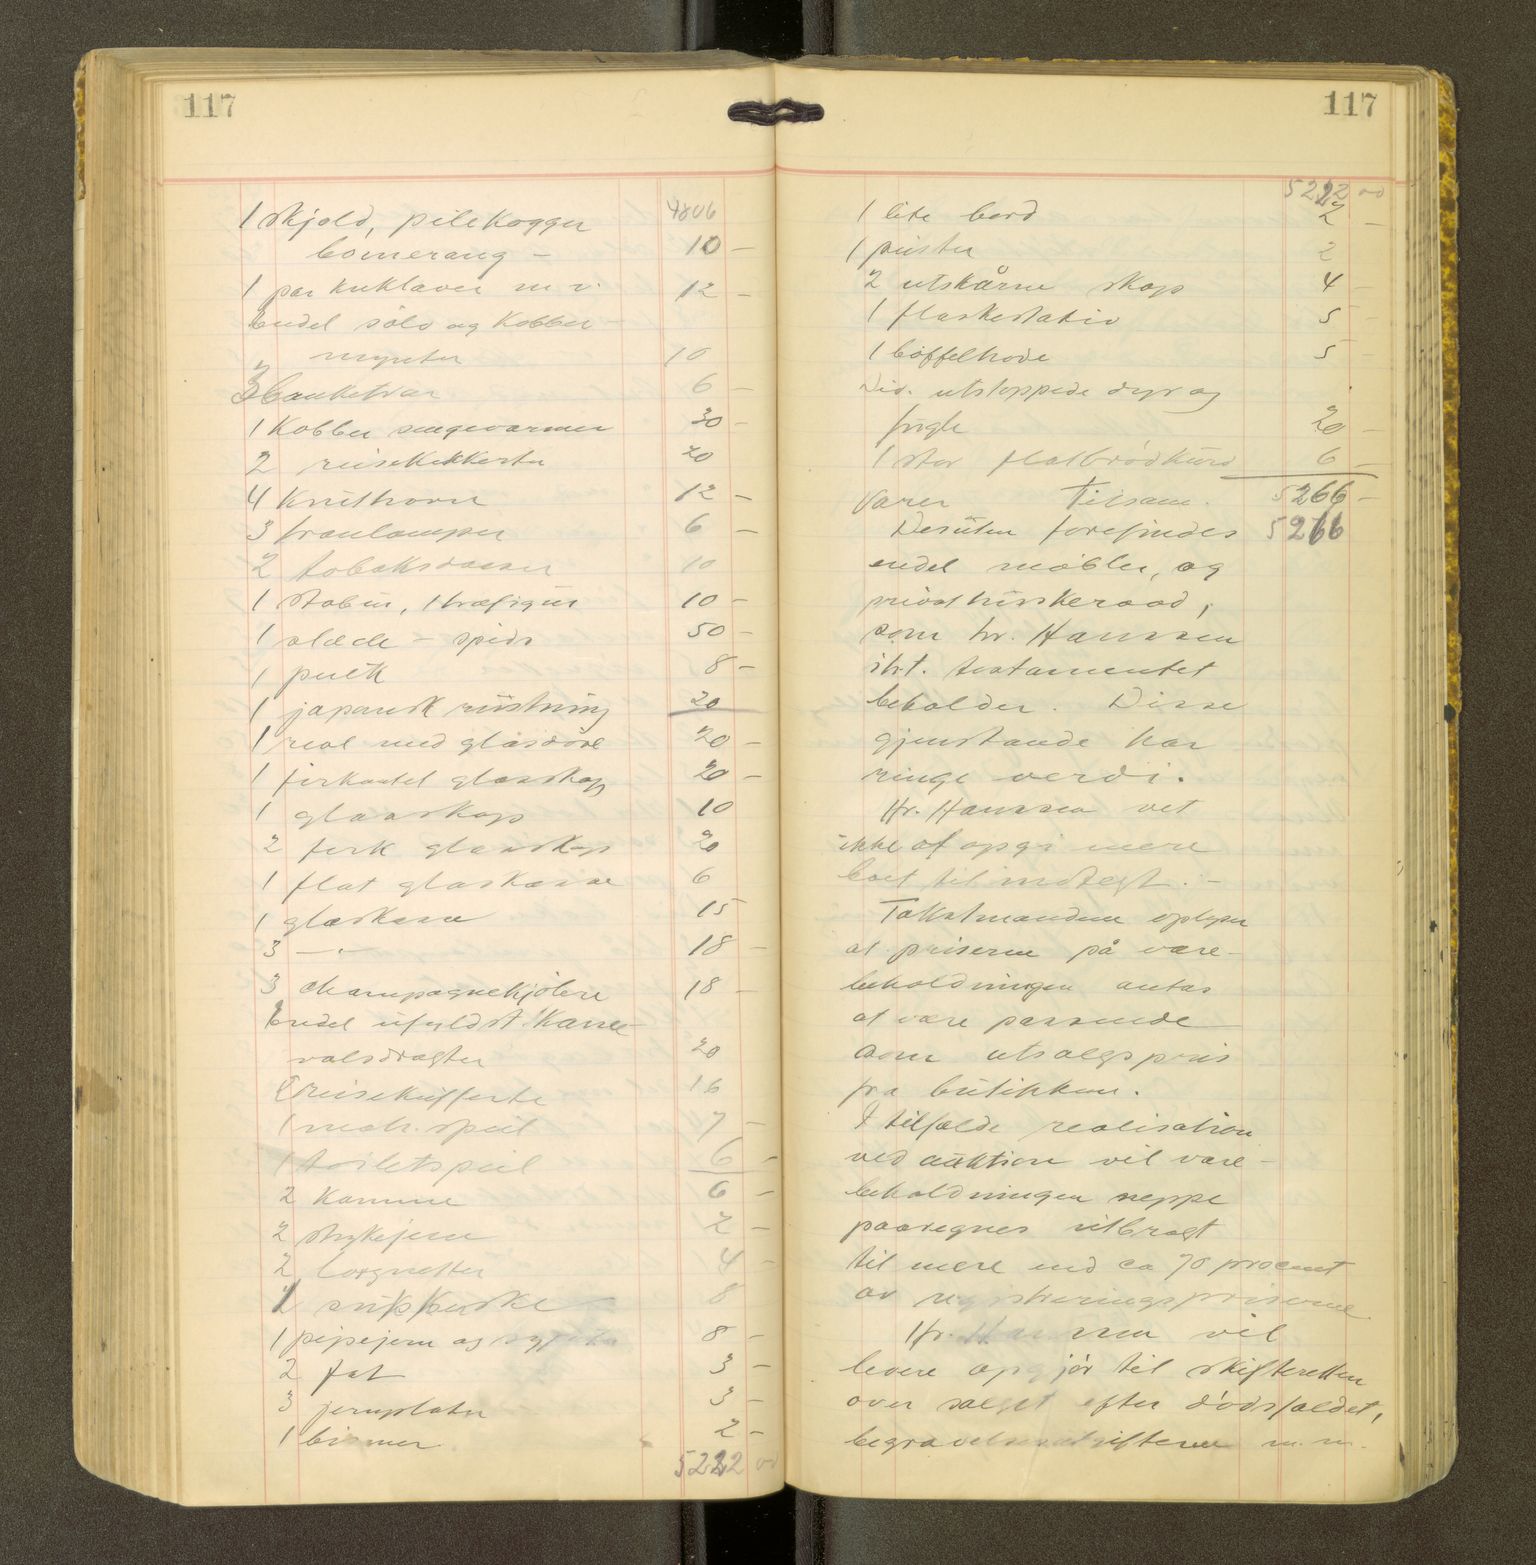 117
4806
1 skjold, pilekogger
bomerang — 10 —
1 par kuklaver m v. 12 —
Endel sølv og Kobber
mynter 10
3 6 —
1 Kobber sengevarmer 30 —
2 reisekikkerter 20
4 Kruthorn 12 —
3 tranlamper 6 —
2 tobaksdaaser 10
1 stabur, 1 træfigur 10 —
1 slæde — spids 50 —
1 pulk 8 —
1 japansk rustning 20
1 reol med glasdøre 20 —
1 firkantet glasskap 20 —
1 glasskap 10
2 firk glasskap 20
1 flat glaskasse 6
1 glaskasse 15
3 —"— 18 —
3 champagnekjølere 18 —
Endel ufuldst. Karne-
valsdragter 20
reisekufferte 16
1 mah. speil 7 —
1 toiletspeil 6 —
2 Kamme 6 —
2 strykejern 2 —
2 lorgnetter 4 —
8
1 pipejern og 8 —
2 fat 3 —
3 jernplater 3 —
1 bismer 2 —
5222 00
117
5222 00
1 lite bord 2 —
1 puster 2
2 utskårne skap 4 —
1 flaskestativ 5 —
1 bøffelhode 5
Div. utstoppede dyr og
fugle 20 —
1 stor flatbrødkurv 6 —
Varer Tilsam. 5266 —
Desuten forefindes 5266
endel møbler, og
privat huskeraad,
som hr. Hanssen
iht. testamentet
beholder. Disse
gjenstande har
ringe verdi.
Hr. Hanssen vet
ikke at opgi mere
boet til indtegt. —
Takstmændene oplyser
at priserne på vare-
beholdningen antas
at være passende
som utsalgspris
fra butikken.
I tilfælde realisation
ved auktion vil vare-
beholdningen neppe
paaregnes utbragt
til mere end ca 70 procent
av registreringspriserne
Hr. Hanssen vil
levere opgjør til skifteretten
over salget efter dødsfaldet,
begravelsesutgifterne m. m.